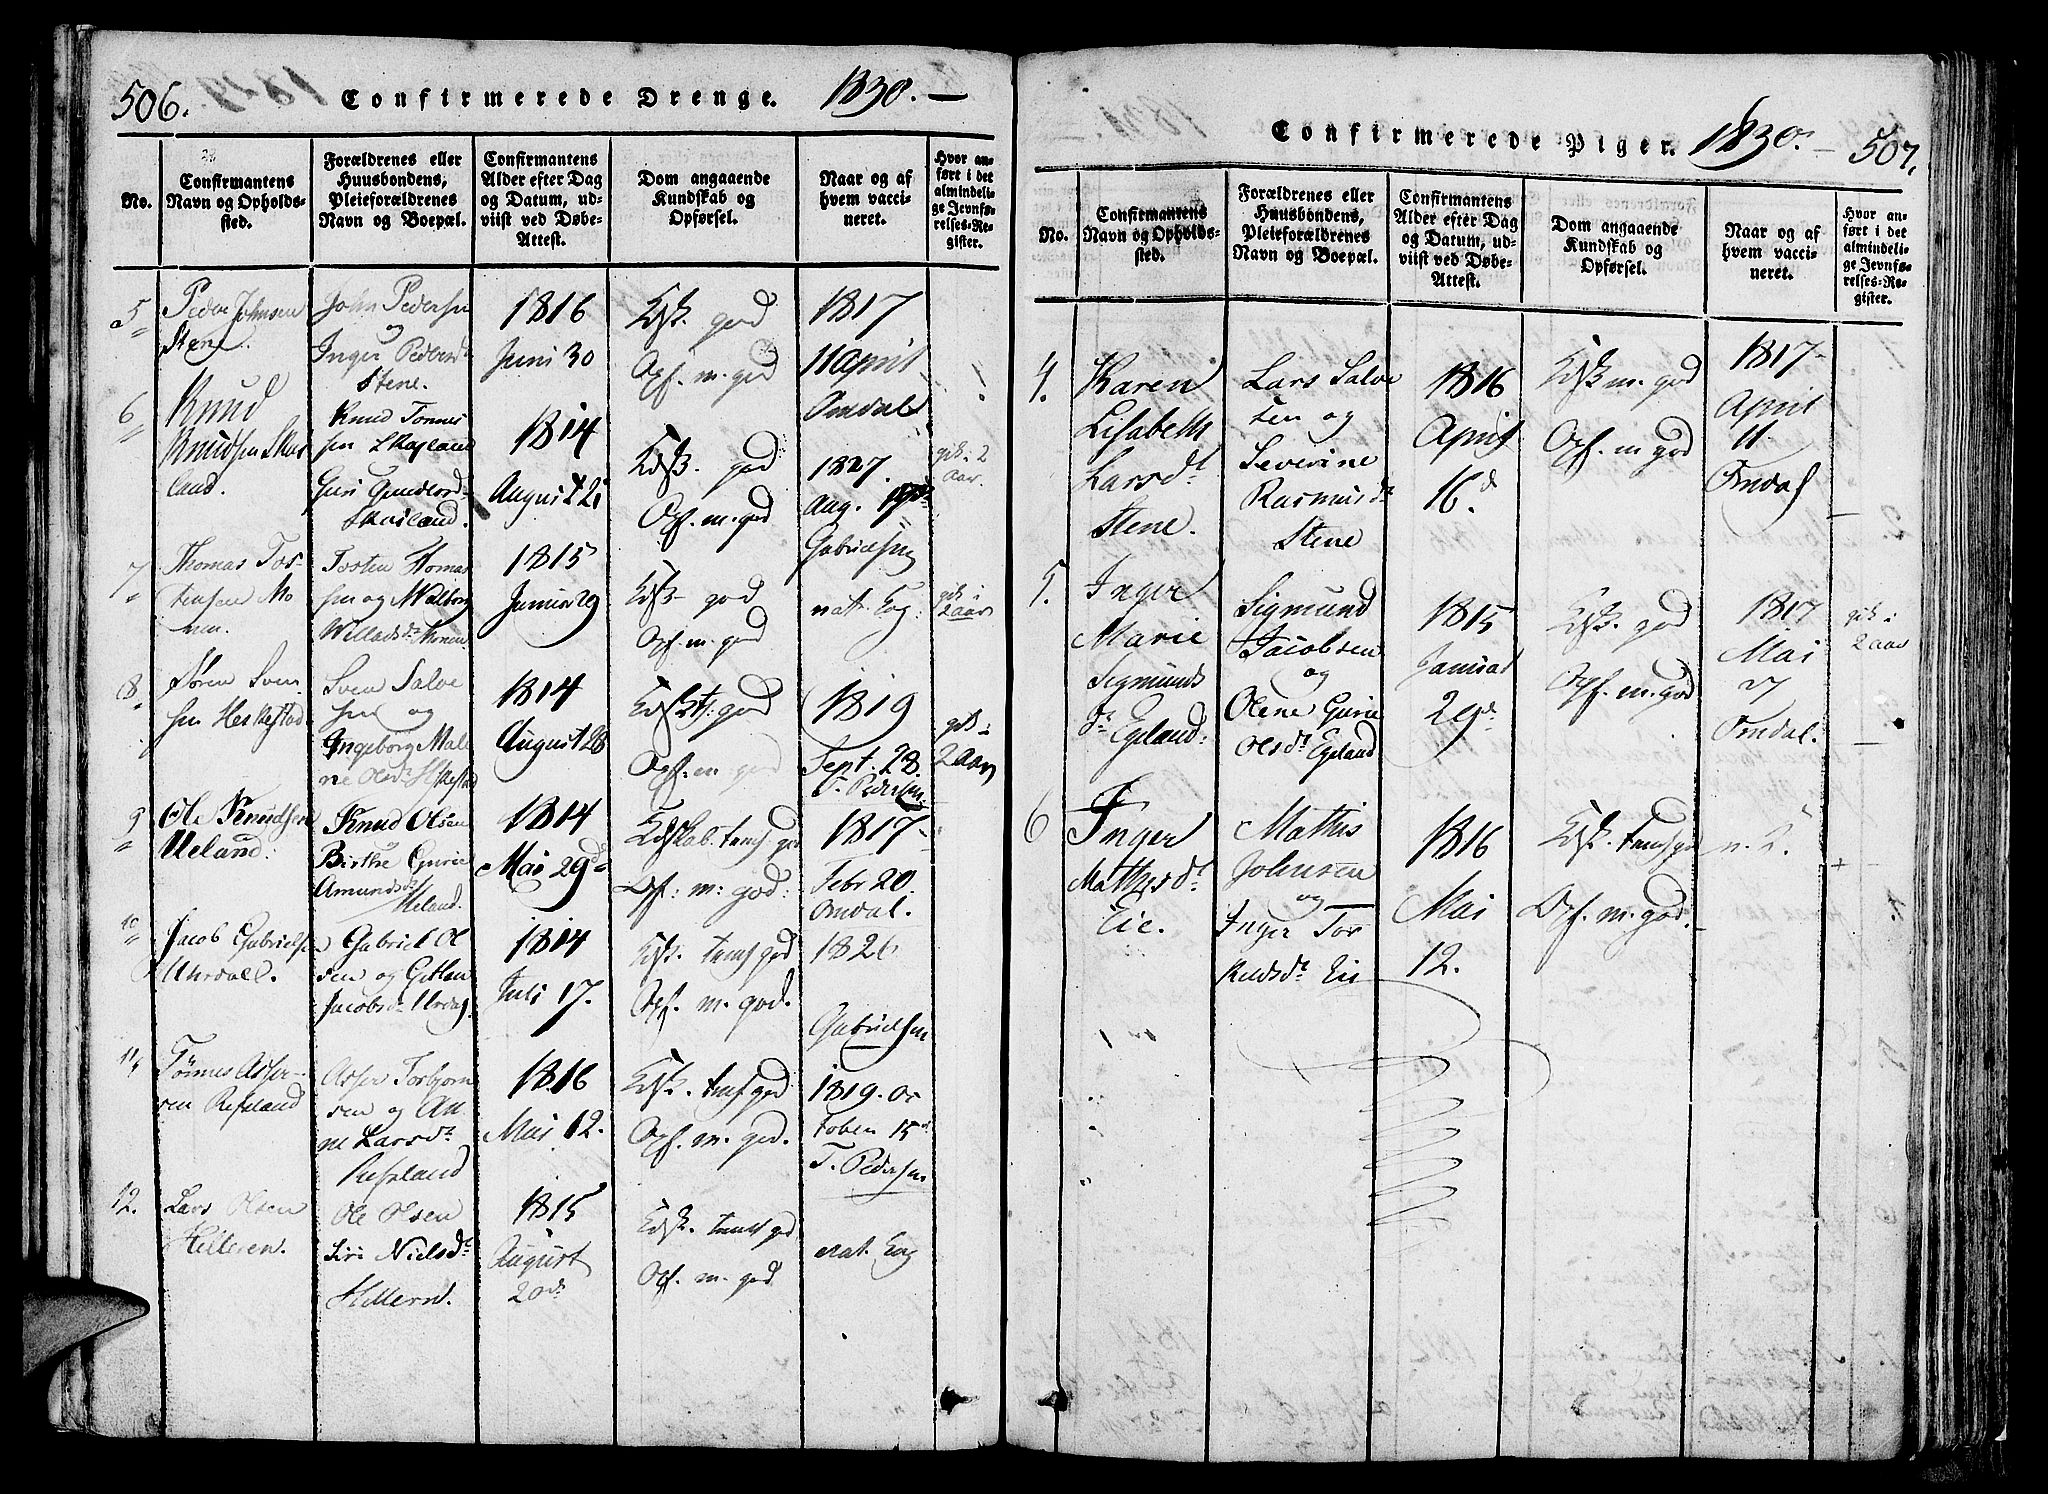 506. Confirmerede Drenge. 1830. —
No.
Confirmantens Navn og Opholds-sted.
Forældrenes eller Huusbondens, Pleieforældrenes Navn og Boepæl.
Confirmantens Alder efter Dag og Datum, ud-viist ved Døbe-Attest.
Dom angaaende Kundskab og Opførsel.
Naar og af hvem vacci-neret.
Hvor an-ført i det almindeli-ge Jevnfø-relses-Re-gister.
5
Peder Johnsen
Stene.
John Pedersen
og
Inger Pedersdt
Stene.
1816
Juni 30
Kdsk. god
Opf. m. god
1817
11 April
Omdal
6
Knud
Knudsen Skaar
land.
Knud Tønnes
sen Skaarland
Guri Gundlordt
Skaarland.
1814
August 21
Kdsk. god
Opf. m. god
1827.
Aug. 19de
Gabrielsen
gik 2
Aar.
7
Thomas Tos-
tensen Mo
nen.
Tosten Thomas
sen og Malborg
Willadsdt Monen
1815
Junius 29
Kdsk. god
Opf. m. god
nat. Kop.
gik i
2 aar
8
Søren Sven
sen Heskestad
Sven Salve
sen og
Ingeborg Male
ne Olsdt Heskestad
1814
August 28
Kdsk. t. god
Opf. m. god
1819
Sept. 28.
T. Pedersen
gik i
2 Aar
9
Ole Knudsen
Ueland.
Knud Olsen
Birthe Gurie
Amundsdt
Ueland.
1814
Mai 29de
Kdskab. tem. god
Opf. m. god.
1817
Febr 20.
Omdal.
10
Jacob Gabriels
Uurdall.
Gabriel Ol
sen og
Jacobsdt Urdal
1814
Juli 17.
Kdsk. tem. god
Opf. m. god.
1826
Gabrielsen
11
Tønnes Asser
sen Refsland
Asser Torbjørn
sen og An
ne Larsdt
Refsland
1816
Mai 12.
Kdsk. tem. god
Opf. m. god.
1819. Oc
tober 15d
T. Pedersen
12.
Lars Olsen
Helleren.
Ole Olsen
Siri Nielsdt
Hellern.
1815
August
20de
Kdsk. tem. god
Opf. m. god
nat. Kop
Confirmerede Piger. 1830. — 507.
No.
Confirmantens Navn og Opholds-sted.
Forældrenes eller Huusbondens, Pleieforældrenes Navn og Boepæl.
Confirmantens Alder efter Dag og Datum, ud-viist ved Døbe-Attest.
Dom angaaende Kundskab og Opførsel.
Naar og af hvem vacci-neret.
Hvor an-ført i det almindeli-ge Jevnfø-relses-Re-gister.
4.
Karen
Lisabeth
Larsdt
Stene.
Lars Salve
sen og
Severine
Rasmusdt
Stene
1816
April
16d.
Kdsk m. god
Opf. m god
1817
April
11.
Omdal
5.
Inger
Marie
Sigmunds
dt Egeland.
Sigmund
Jacobsen
og
Olene Gurie
Olsdt Egeland
1815
Januar
29de
Kdsk. god
Opf. m. god
1817
Mai
7
Omdal.
gik i
2 aar
6
Inger
Mathisdt
Eie.
Mathis
Johnsen
og
Inger Tor
kildsdt Eie
1816
Mai
12.
Kdsk. tem. god
Opf. m. god.
n. K.